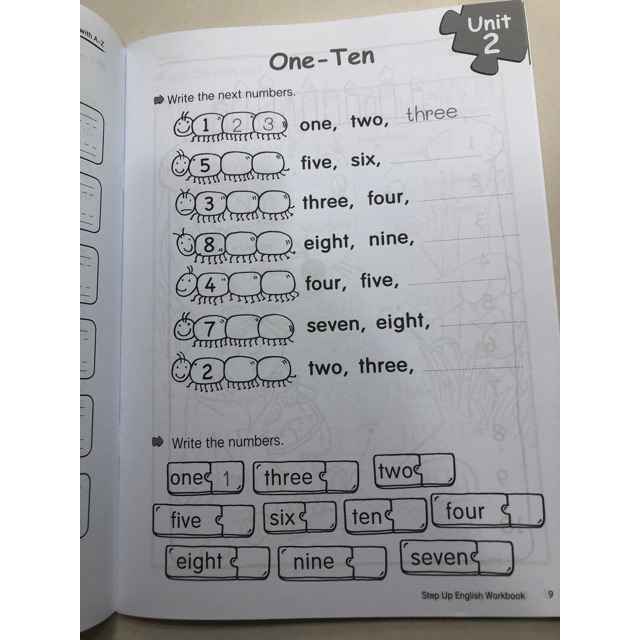 with A-Z
Unit
2
One-Ten
Write the next numbers.
1 2 3 one, two, three
5 five, six,
3 three, four,
8 eight, nine,
4 four, five,
7 seven, eight,
2 two, three,
Write the numbers.
one 1 three two
five six ten four
eight nine seven
Step Up English Workbook 9